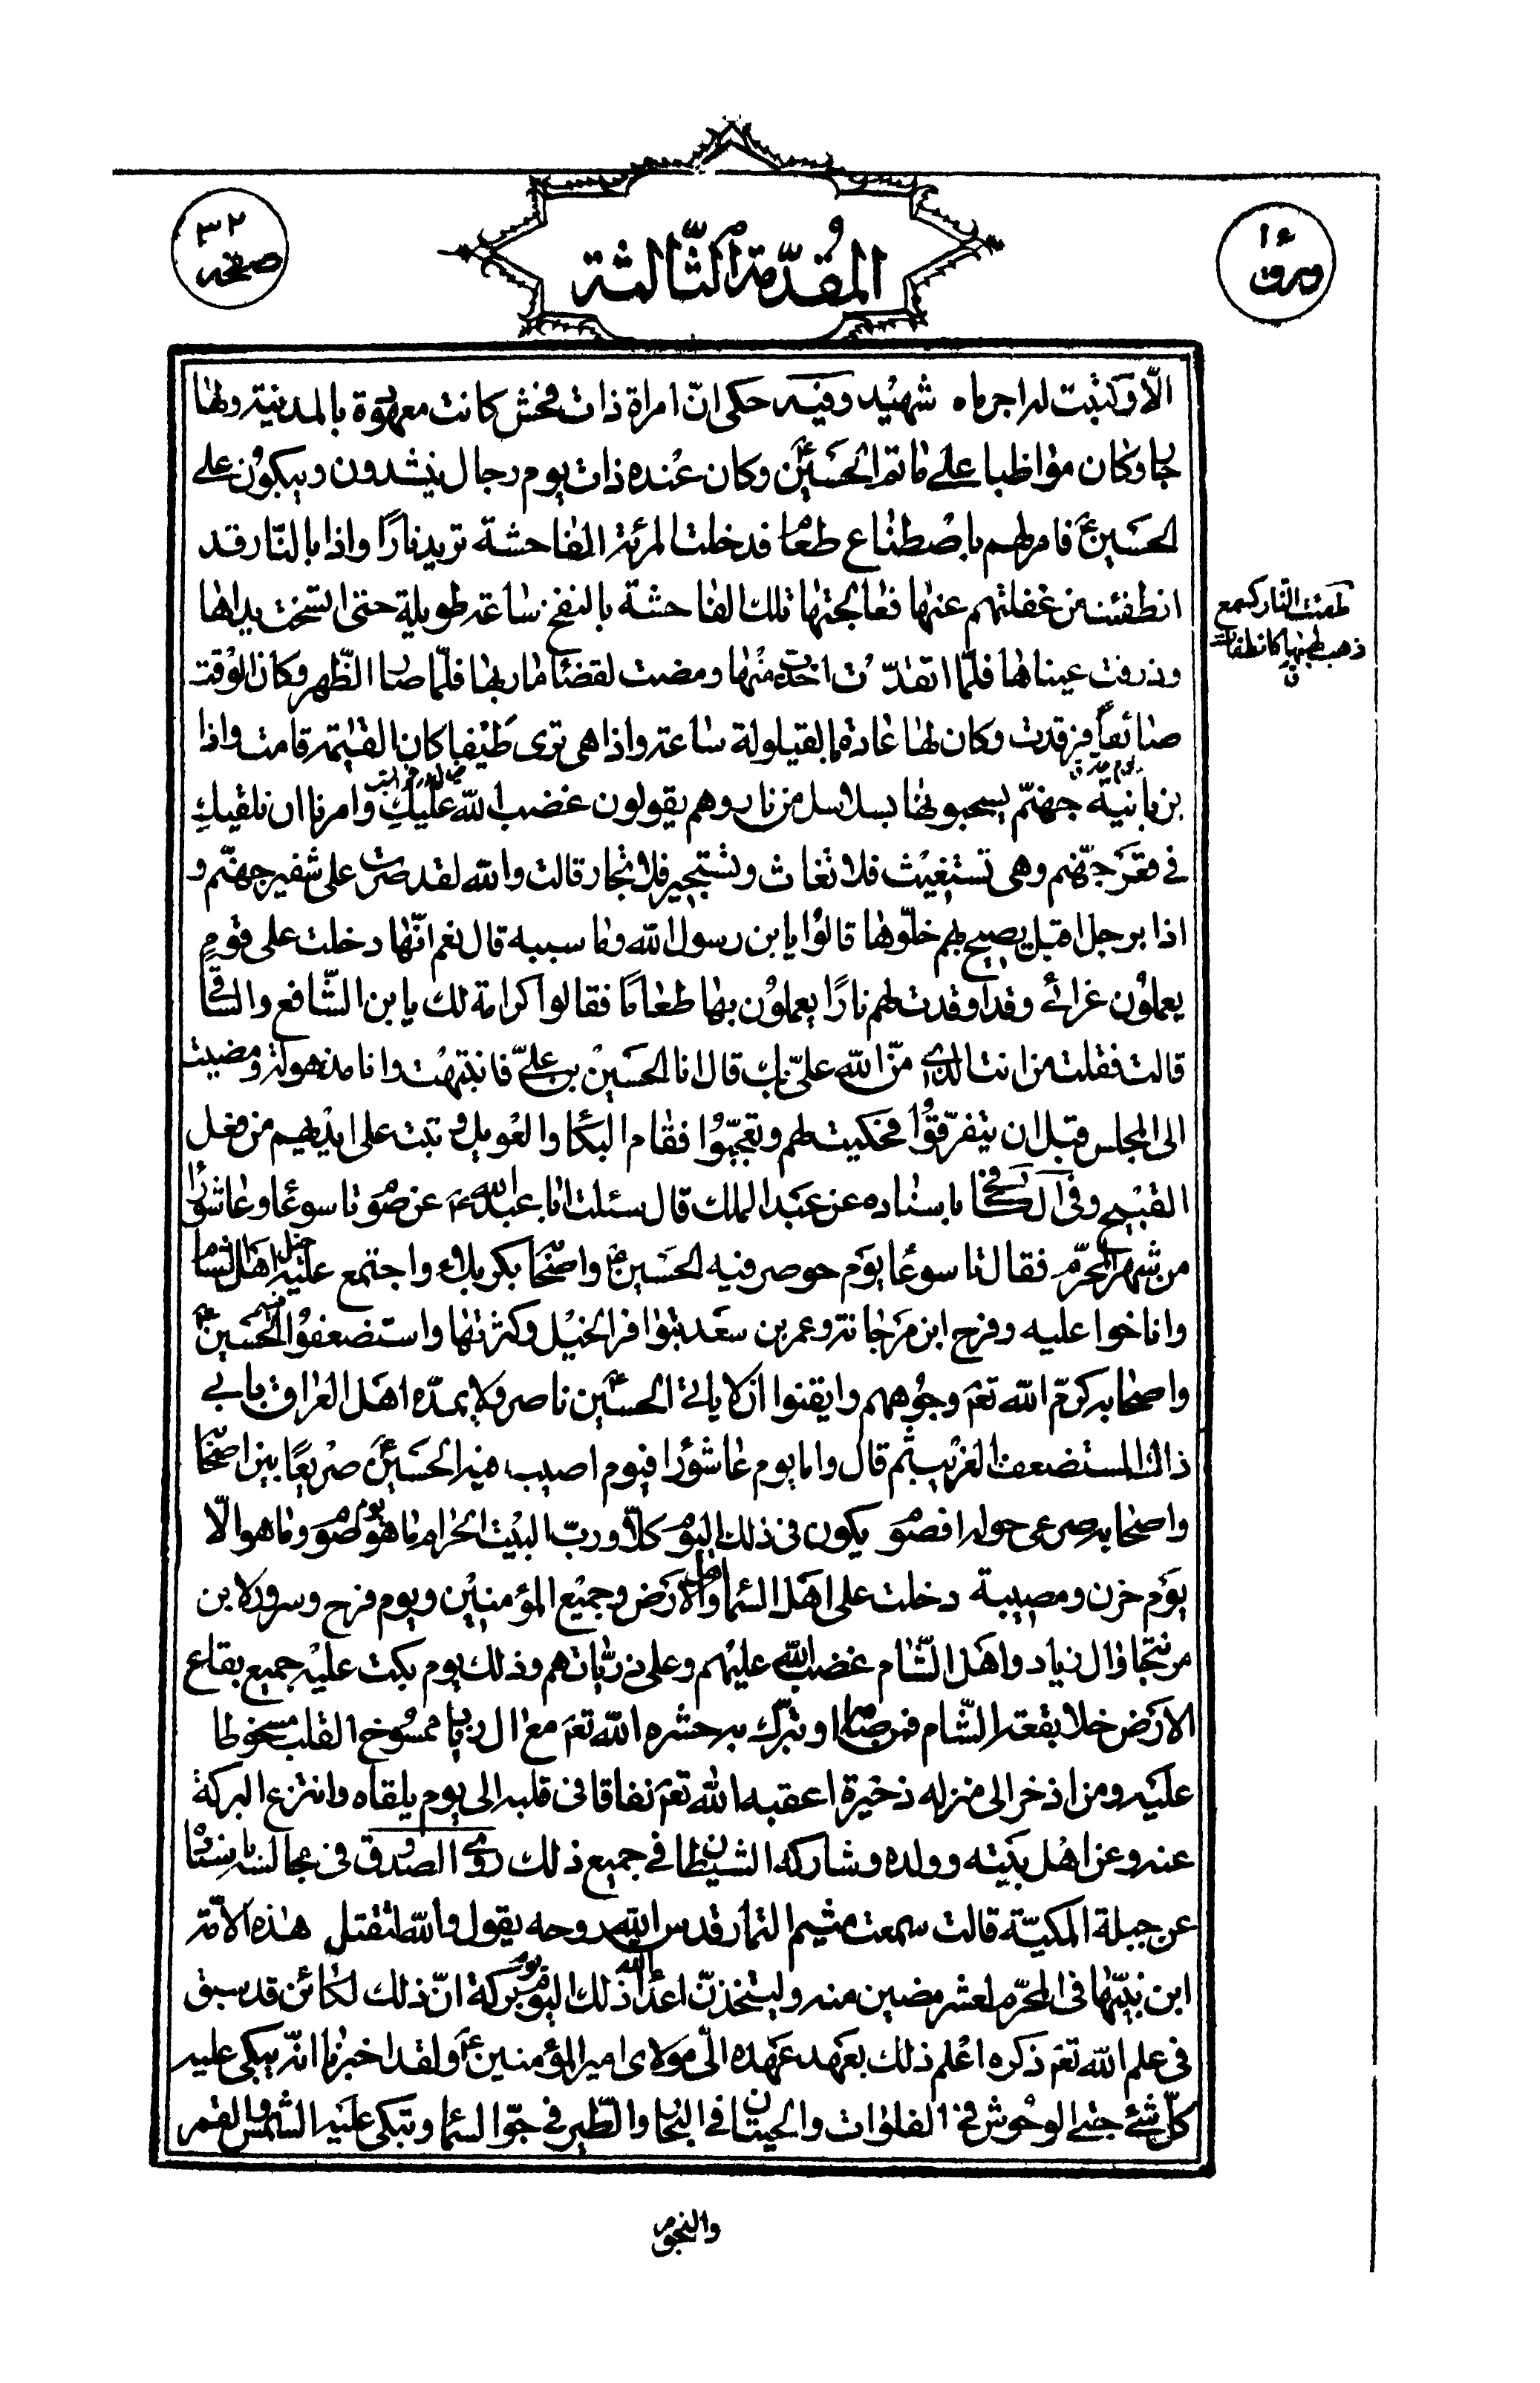 ١٦
ورق
المقدّمة الثّالثة
٣٢
صفحه
الّا وكتبت له اجر ماه شهيد وفيه حكى انّ امراة ذات فحش كانت معهودة بالمدينة ولها
جار وكان مواظبا على ماتم الحسينؑ وكان عنده ذات يوم رجال ينشدون ويبكون على
الحسينؑ فامر لهم باصطناع طعام فدخلت المرئة الفاحشة تريد نارًا واذا بالنّار قد
انطفئت من غفلتهم عنها فعالجتها تلك الفاحشة بالنفخ ساعة طويلة حتى اتسخت يداها
وذرفت عيناها فلمّا اتقدّت اخذت منها ومضت لقضاء ماربها فلمّا صار الظّهر وكان الوقت
صائفاً فرقدت وكان لها عادة بالقيلولة ساعة واذا هى ترى طيفا كان القيمة قامت واذا
بزبانية جهنّم يسحبونها بسلاسل من نار وهم يقولون غضب الله عليكِ وامرنا ان نلقيكِ
في قعر جهنّم وهى تستغيث فلا تغاث وتستجير فلا تجار قالت والله لقد صرت على شفير جهنّم و
اذا برجل اقبل يصيح بهم خلّوها قالوا يا بن رسول الله وما سببه قال نعم انّها دخلت على قوم
يعملون عزائى وقد اوقدت لهم نارًا يعملون بها طعامًا فقالوا كرامة لك يا بن الشّافع والساقى
قالت فقلت من انت الذى منّ الله علىّ بك قال انا الحسين بن علىّ فانتبهت وانا مذهولة ومضيت
الى المجلس قبل ان يتفرّقوا فحكيت لهم وتعجّبوا فقام البكاء والعويل وتبت على ايديهم من فعل
القبيح وفى الكافى باسناده عن عبد الملك قال سئلت ابا عبد اللهؑ عن صوم تاسوعا وعاشورا
من شهر المحرّم فقال تاسوعا يوم حوصر فيه الحسينؑ واصحابه بكربلاء واجتمع عليه خيل اهل الشام
واناخوا عليه وفرح ابن مرجانة وعمر بن سعد بتوافر الخيل وكثرتها واستضعفوا فيه الحسينؑ
واصحابه كرّم الله تعم وجوههم وايقنوا ان لا ياتى الحسينؑ ناصر ولا يمدّه اهل العراق بابى
ذالك المستضعف الغريب ثم قال واما يوم عاشورا فيوم اصيب فيه الحسينؑ صريعًا بين اصحابه
واصحابه صرعى حوله افصوم يكون فى ذلك اليوم كلّا وربّ البيت الحرام ما هو يوم صوم وما هو الّا
يوم حزن ومصيبة دخلت على اهل السماء واهل الارض وجميع المؤمنين ويوم فرح وسرور لابن
مرجانة وال زياد واهل الشّام غضب الله عليهم وعلى ذرّياتهم وذلك يوم بكت عليه جميع بقاع
الارض خلا بقعة الشّام فمن صامه او تبرّك به حشره الله تعم مع ال زياد ممسوخ القلب مسخوطا
عليه ومن اذخر الى منزله ذخيرة اعقبه الله تعم نفاقا فى قلبه الى يوم يلقاه وانتزع البركة
عنه وعن اهل بيته وولده وشاركه الشيطان في جميع ذلك روى الصدوق فى مجالسه باسناده
عن جبلة المكيّة قالت سمعت ميثم التمار قدس الله روحه يقول والله لتقتل هذه الامّة
ابن نبيّها فى المحرّم لعشر مضين منه وليتخذنّ اعداء الله ذلك اليوم يوم بركة انّ ذلك لكائن قد سبق
فى علم الله تعم ذكره اعلم ذلك بعهد عهده الىّ مولاى امير المؤمنينؑ ولقد اخبرنا انّه يبكى عليه
كلّ شئ حتى الوحوش فى الفلوات والحيتان فى البحار والطّير فى جوّ السماء وتبكى عليه الشمس والقمر
طفئت النار كسمع
ذهب لهبها كانطفات
ق
والنجوم